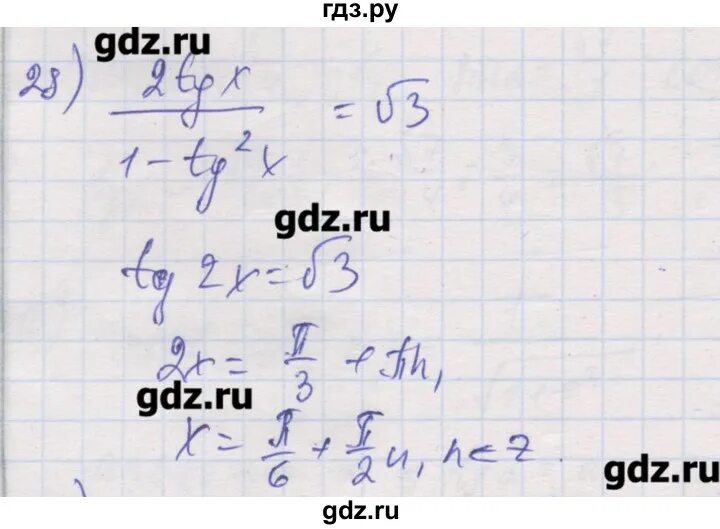 гдз.ру
gdz.ru
28) 2 tg x / 1 - tg² x = √3
gdz.ru
tg 2x = √3
2x = π/3 + πn,
gdz.ru
x = π/6 + π/2 n, n ∈ Z.
gdz.ru
gdz.ru